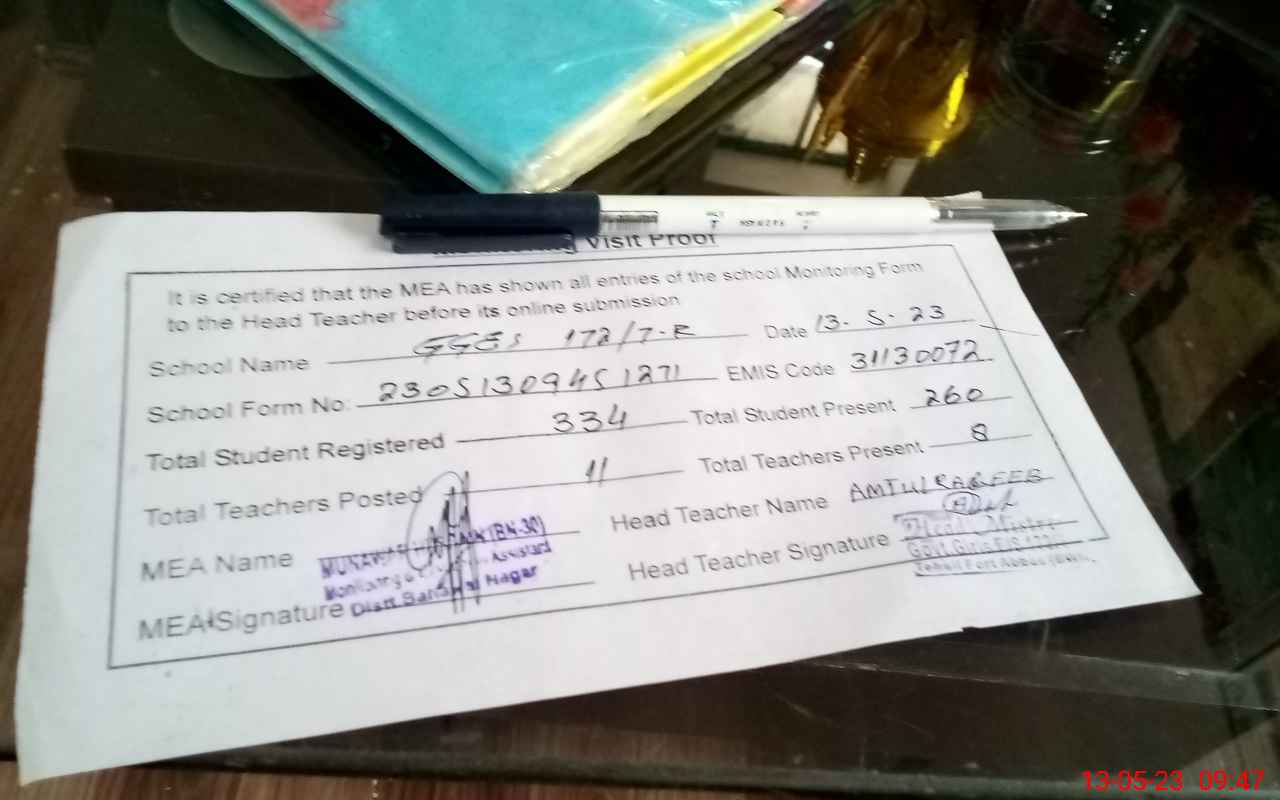 Visit Proof
It is certified that the MEA has shown all entries of the school Monitoring Form
to the Head Teacher before its online submission
School Name GGES 172/7-R Date 13-5-23
School Form No: 23051309451271 EMIS Code 31130072
Total Student Registered 334 Total Student Present 260
Total Teachers Posted 11 Total Teachers Present 8
MEA Name (BN-30) Head Teacher Name AMTUL RAQEEB
Assistant
MEA Signature Distt. Nagar Head Teacher Signature
Head Mistr
Govt. Girls E/S 172/
Tehsil Fort Abbas
13-05-23 09:47